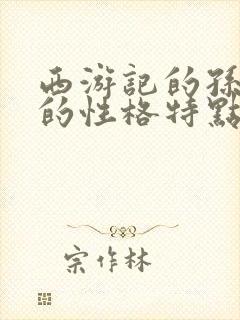 西游記的孫
的性格特點
宗作林